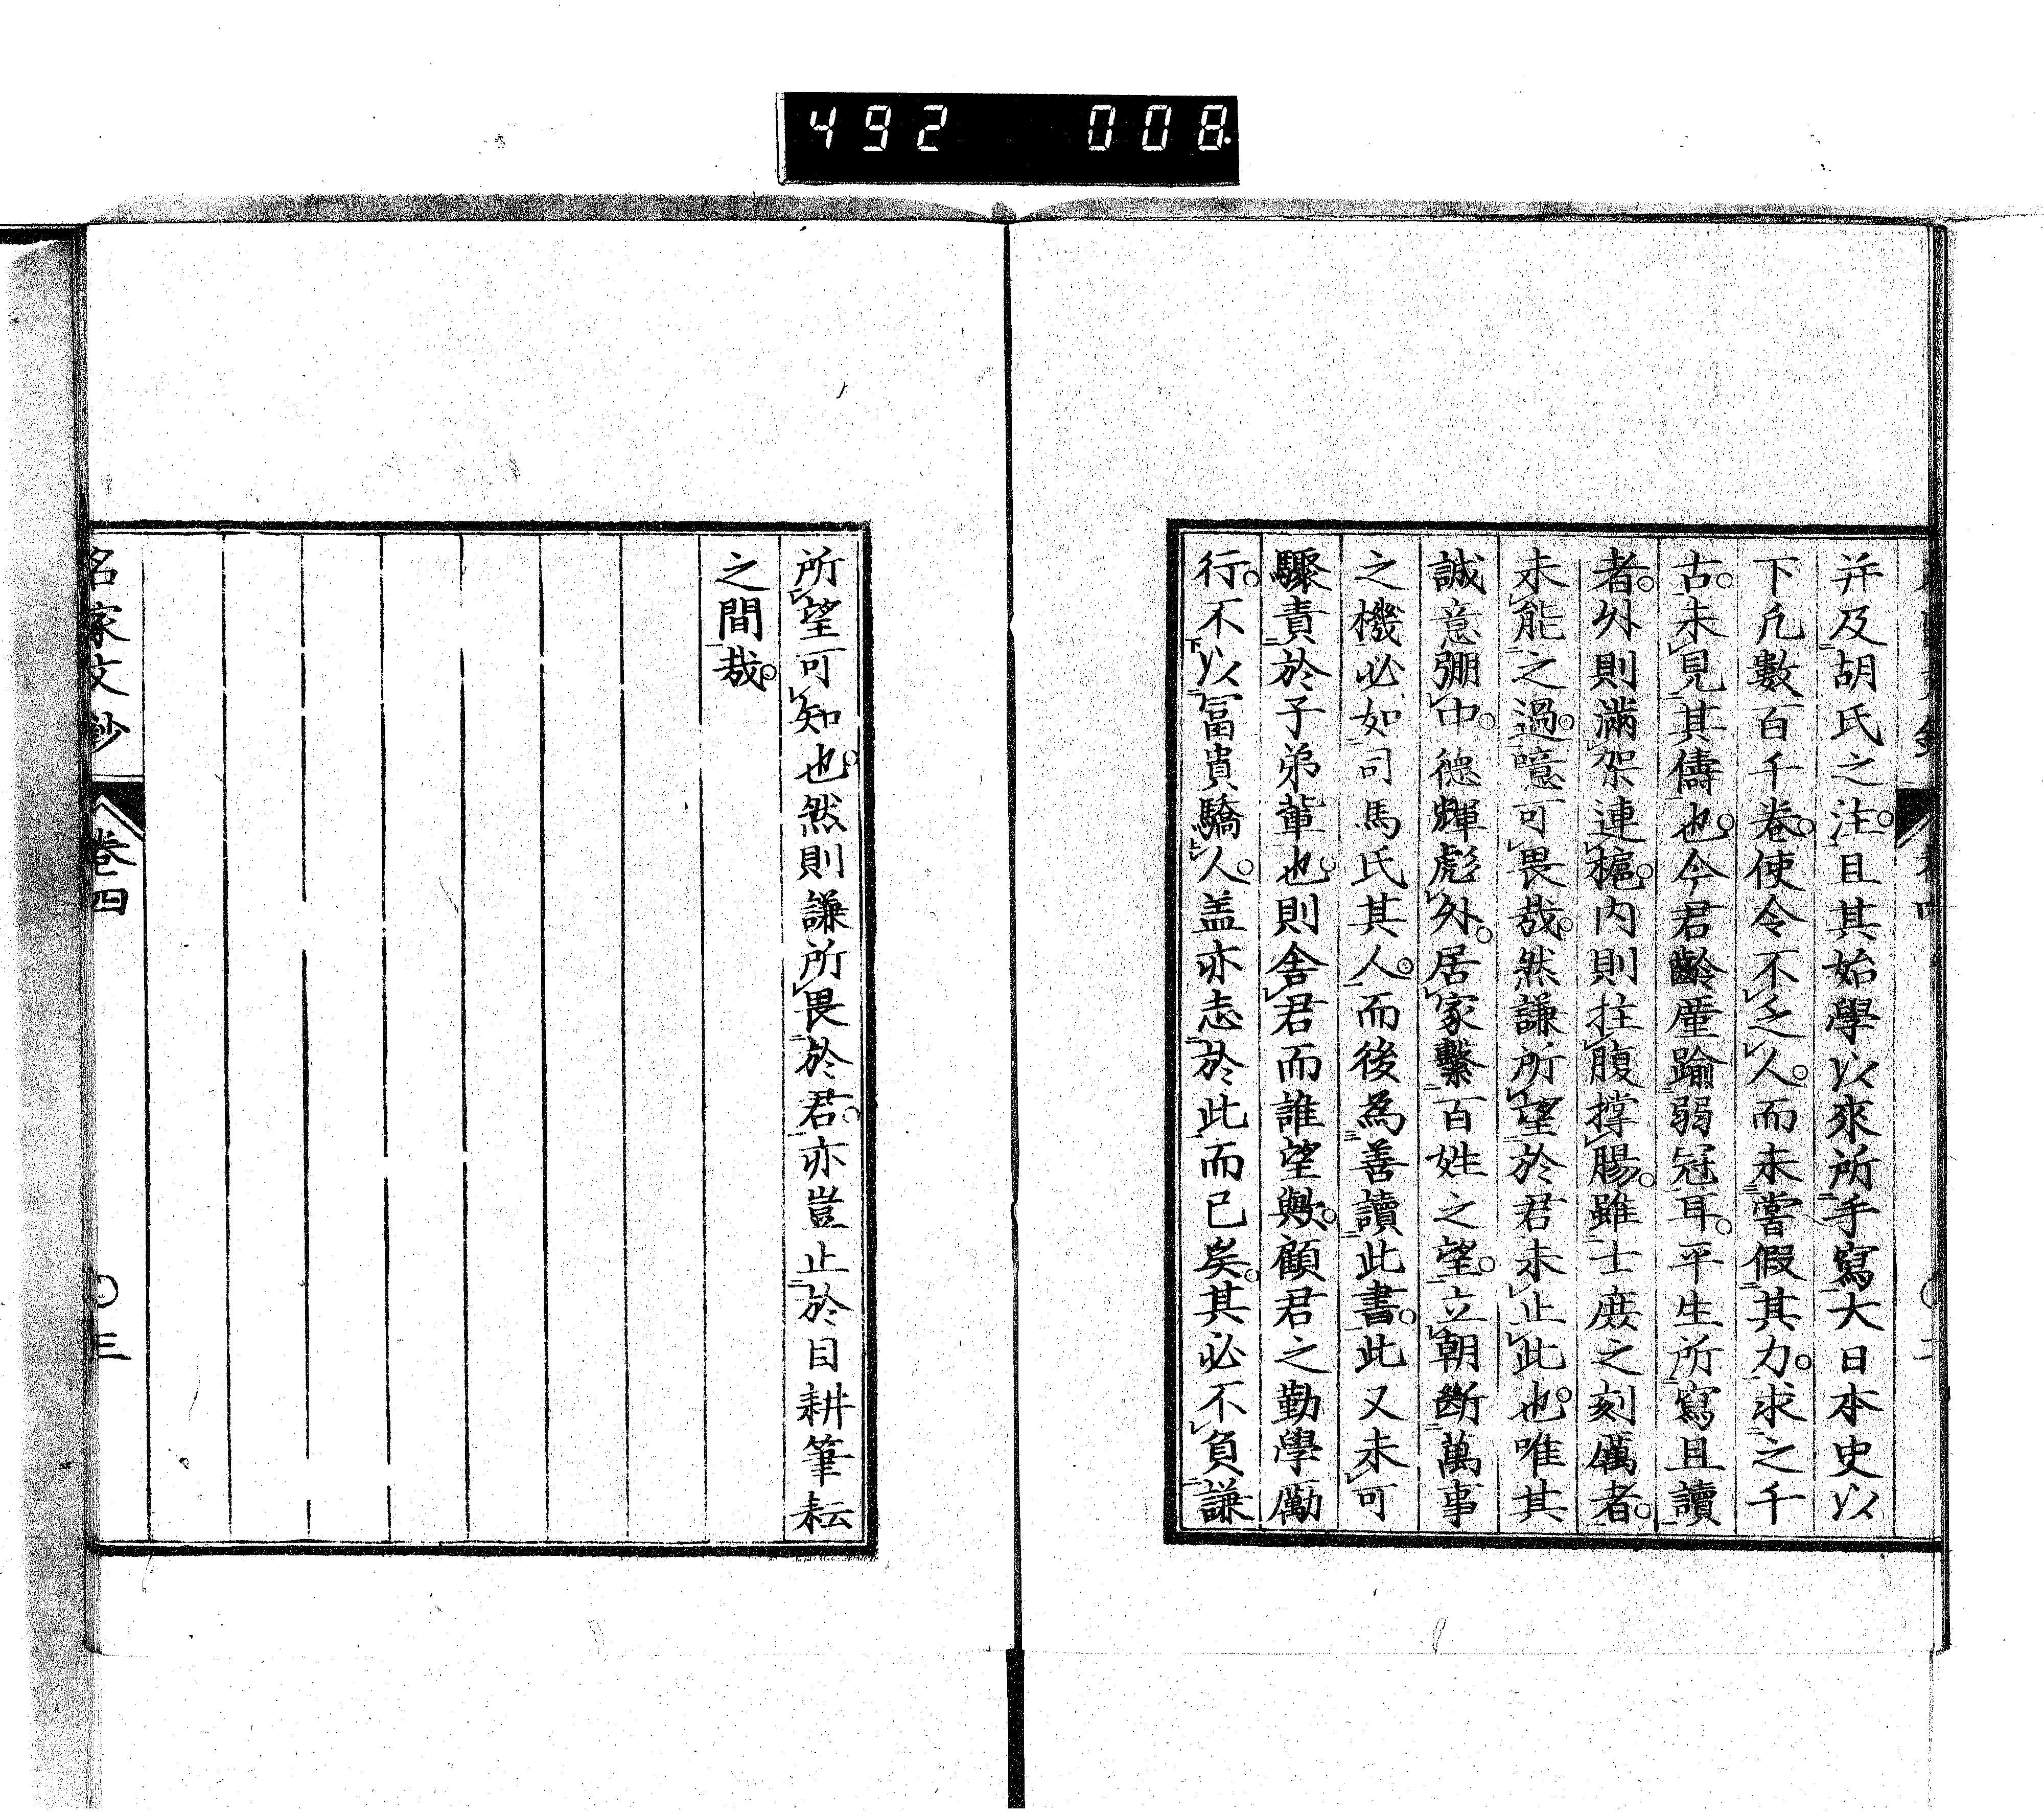 492 008
并及胡氏之注。且其始學以來所手寫大日本史以
下凡數百千卷。使令不乏人。而未嘗假其力。求之千
古。未見其儔也。今君齡廑踰弱冠耳。平生所寫且讀
者。外則滿架連櫨。內則拄腹撐腸。雖士庶之刻厲者。
未能之過。噫可畏哉。然謙所望於君未止此也。唯其
誠意弸中。德輝彪外。居家繫百姓之望。立朝斷萬事
之機。必如司馬氏其人。而後為善讀此書。此又未可
驟責於子弟輩也。則舍君而誰望歟。顧君之勤學勵
行。不以富貴驕人。盖亦志於此而已矣。其必不負謙
所望可知也。然則謙所畏於君。亦豈止於日耕筆耘
之間哉。
名家文鈔 卷四 三